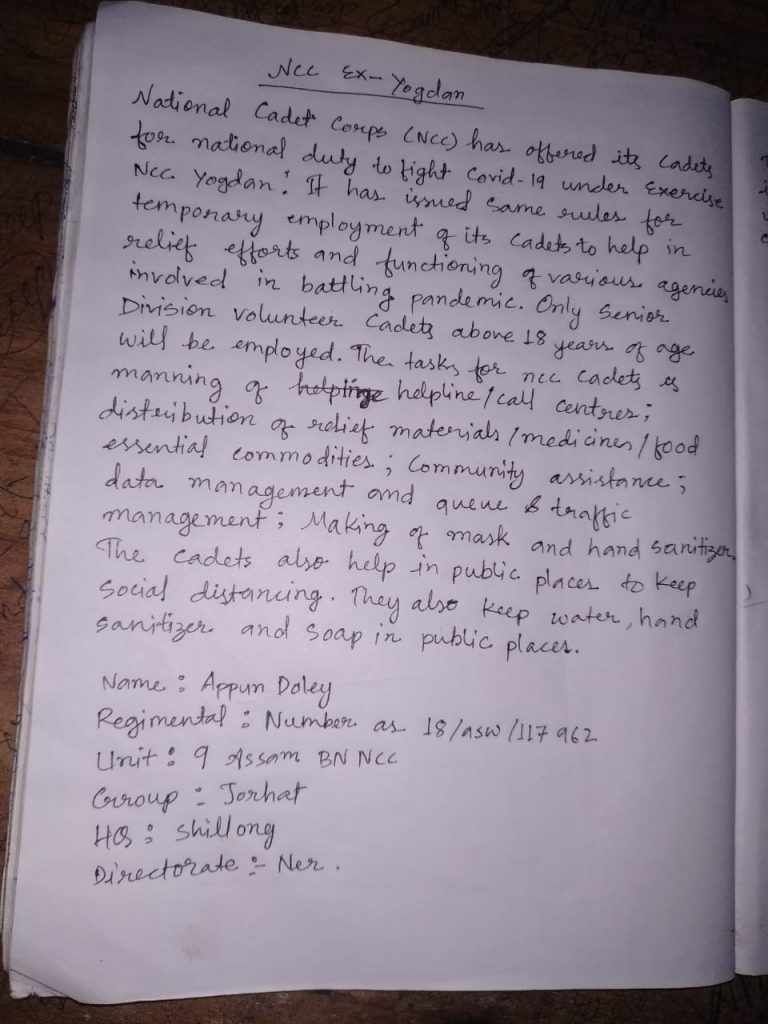 Ncc Ex- Yogdan
National Cadet Corps (Ncc) has offered its cadets
for national duty to fight Covid-19 under Exercise
Ncc Yogdan: It has issued same rules for
temporary employment of its cadets to help in
relief efforts and functioning of various agencies
involved in battling pandemic. Only Senior
Division volunteer Cadets above 18 years of age
will be employed. The tasks for ncc cadets is
manning of helpline helpline/call centres;
distribution of relief materials/medicines/food
essential commodities; Community assistance;
data management and queue & traffic
management; Making of mask and hand sanitizer.
The cadets also help in public places to keep
Social distancing. They also keep water, hand
sanitizer and soap in public places.
Name : Appun Doley
Regimental : Number as 18/asw/117962
Unit : 9 Assam BN NCC
Group :- Jorhat
HQ : Shillong
Directorate :- Ner.